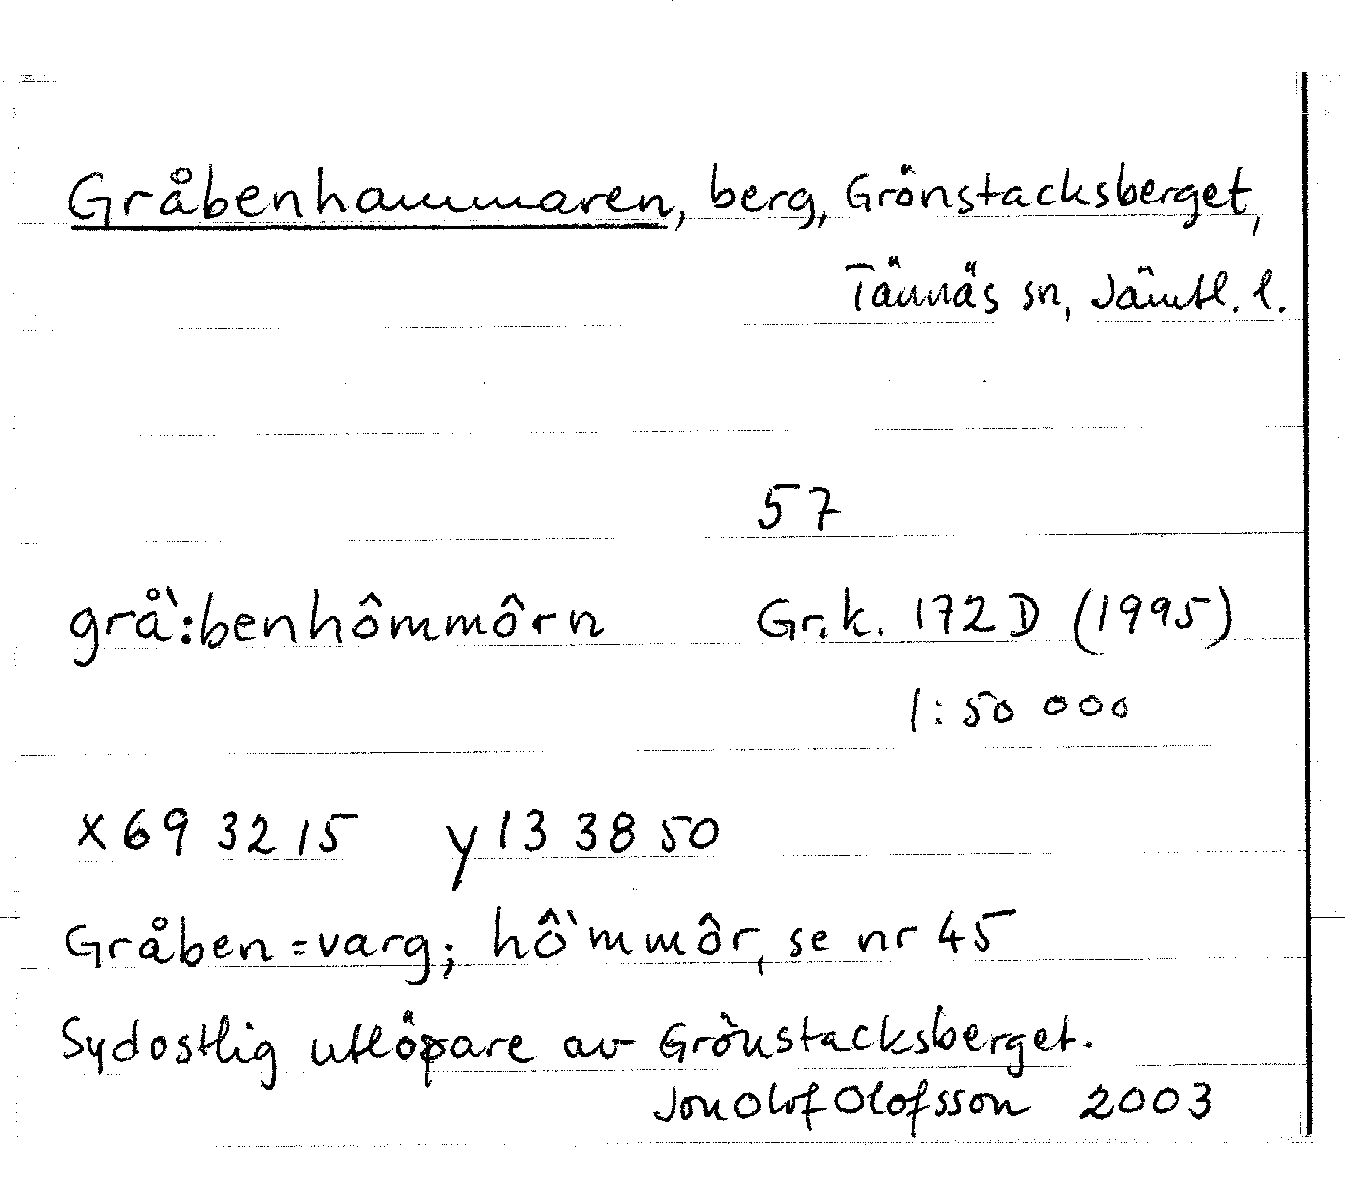 Gråbenhammaren, berg, Grönstacksberget,
Tännäs sn, Jämtl. l.
57
grå`:benhômmôrn Gr.k. 172 D (1995)
1:50 000
x 69 32 15 y 13 38 50
Gråben = varg; hô`mmôr, se nr 45
Sydostlig utlöpare av Grönstacksberget.
Jon Olof Olofsson 2003